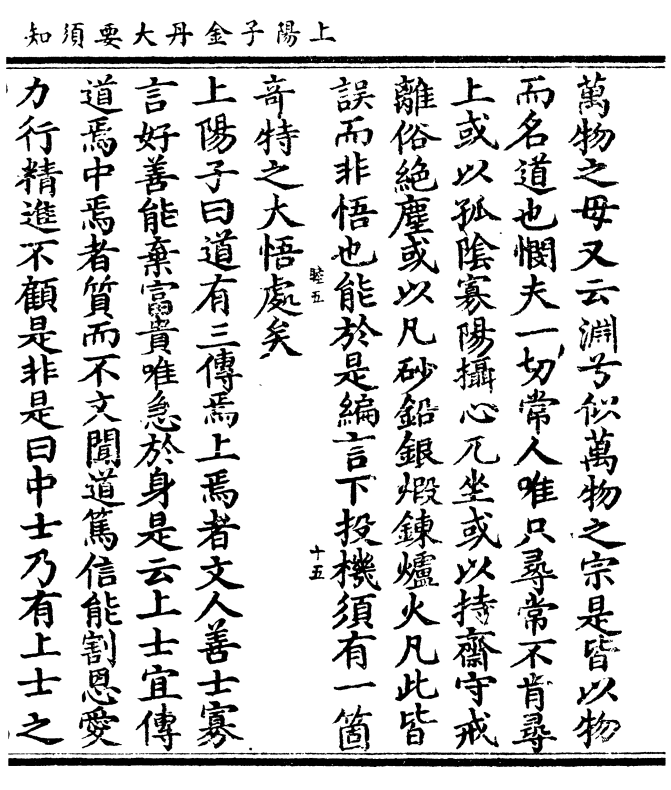 上陽子金丹大要須知
萬物之母又云淵兮似萬物之宗是皆以物
而名道也憫夫一切常人唯只尋常不肯尋
上或以孤陰寡陽攝心兀坐或以持齋守戒
離俗絕塵或以凡砂鉛銀煅鍊爐火凡此皆
誤而非悟也能於是編言下投機須有一箇
睦五
十五
竒特之大悟處矣
上陽子曰道有三傳焉上焉者文人善士寡
言好善能棄富貴唯急於身是云上士宜傳
道焉中焉者質而不文聞道篤信能割恩愛
力行精進不顧是非是曰中士乃有上士之